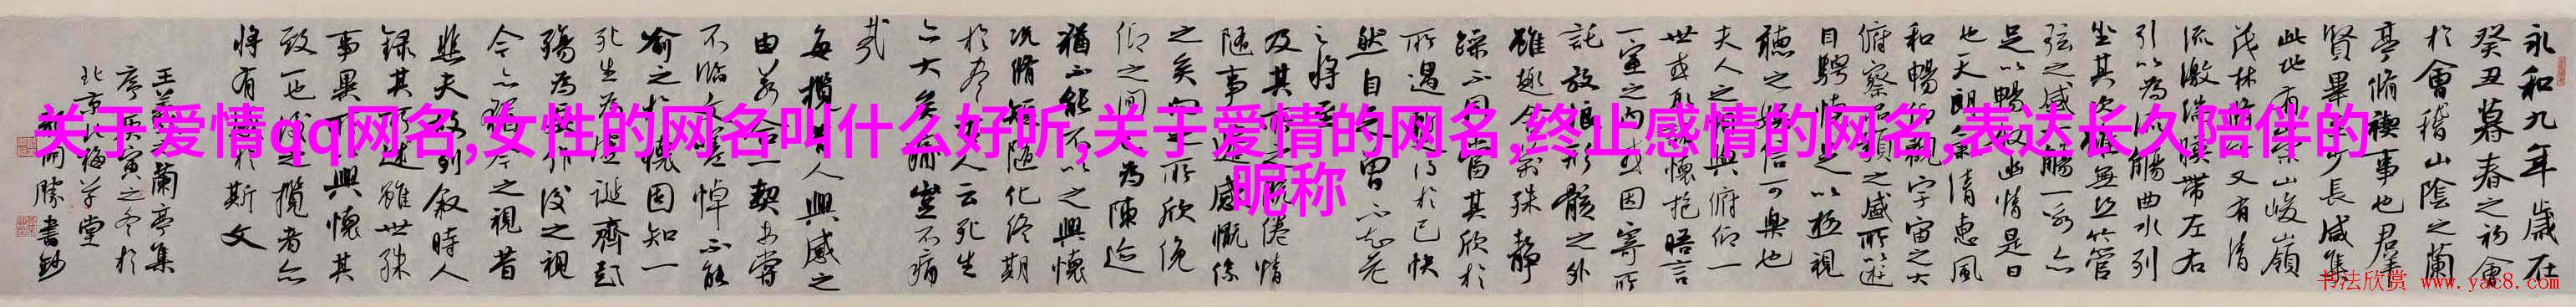 关于爱情qq网名,女性的网名叫什么好听,关于爱情的网名,终止感情的网名,表达长久陪伴的
昵称
永和九年歲在
癸丑暮春之初會
於會稽山陰之蘭
亭脩禊事也群
賢畢至少長咸集
此地有崇山峻嶺
茂林脩竹又有清
流激湍暎帶左右
引以為流觴曲水列
坐其次雖無絲竹管
弦之盛一觴一詠亦
足以暢敘幽情是日
也天朗氣清惠風
和暢仰觀宇宙之大
俯察品類之盛所以遊
目騁懷足以極視
聽之娛信可樂也
夫人之相與俯仰一
世或取諸懷抱晤言
一室之內或因寄所
託放浪形骸之外
雖趣舍萬殊靜
躁不同當其欣於
所遇暫得於己快
然自足曾不知老
之將至
及其所之既惓情
隨事遷感慨係
之矣向之所欣俛
仰之間為陳迹
猶不能不以之興懷
況脩短隨化終期
於盡古人云死生
亦大矣豈不痛
哉
每攬昔人興感之
由若合一契未嘗
不臨文嗟悼不能
喻之於懷固知一
死生為虛誕齊彭
殤為妄作後之視
今亦由今之視昔
悲夫故列敘時人
錄其所述雖世殊
事異所以興懷其
致一也後之攬者亦
將有感於斯文
王羲之蘭亭集
序庚寅之冬於
北京草堂
開勝書鈔
书法欣赏 www.yac8.com